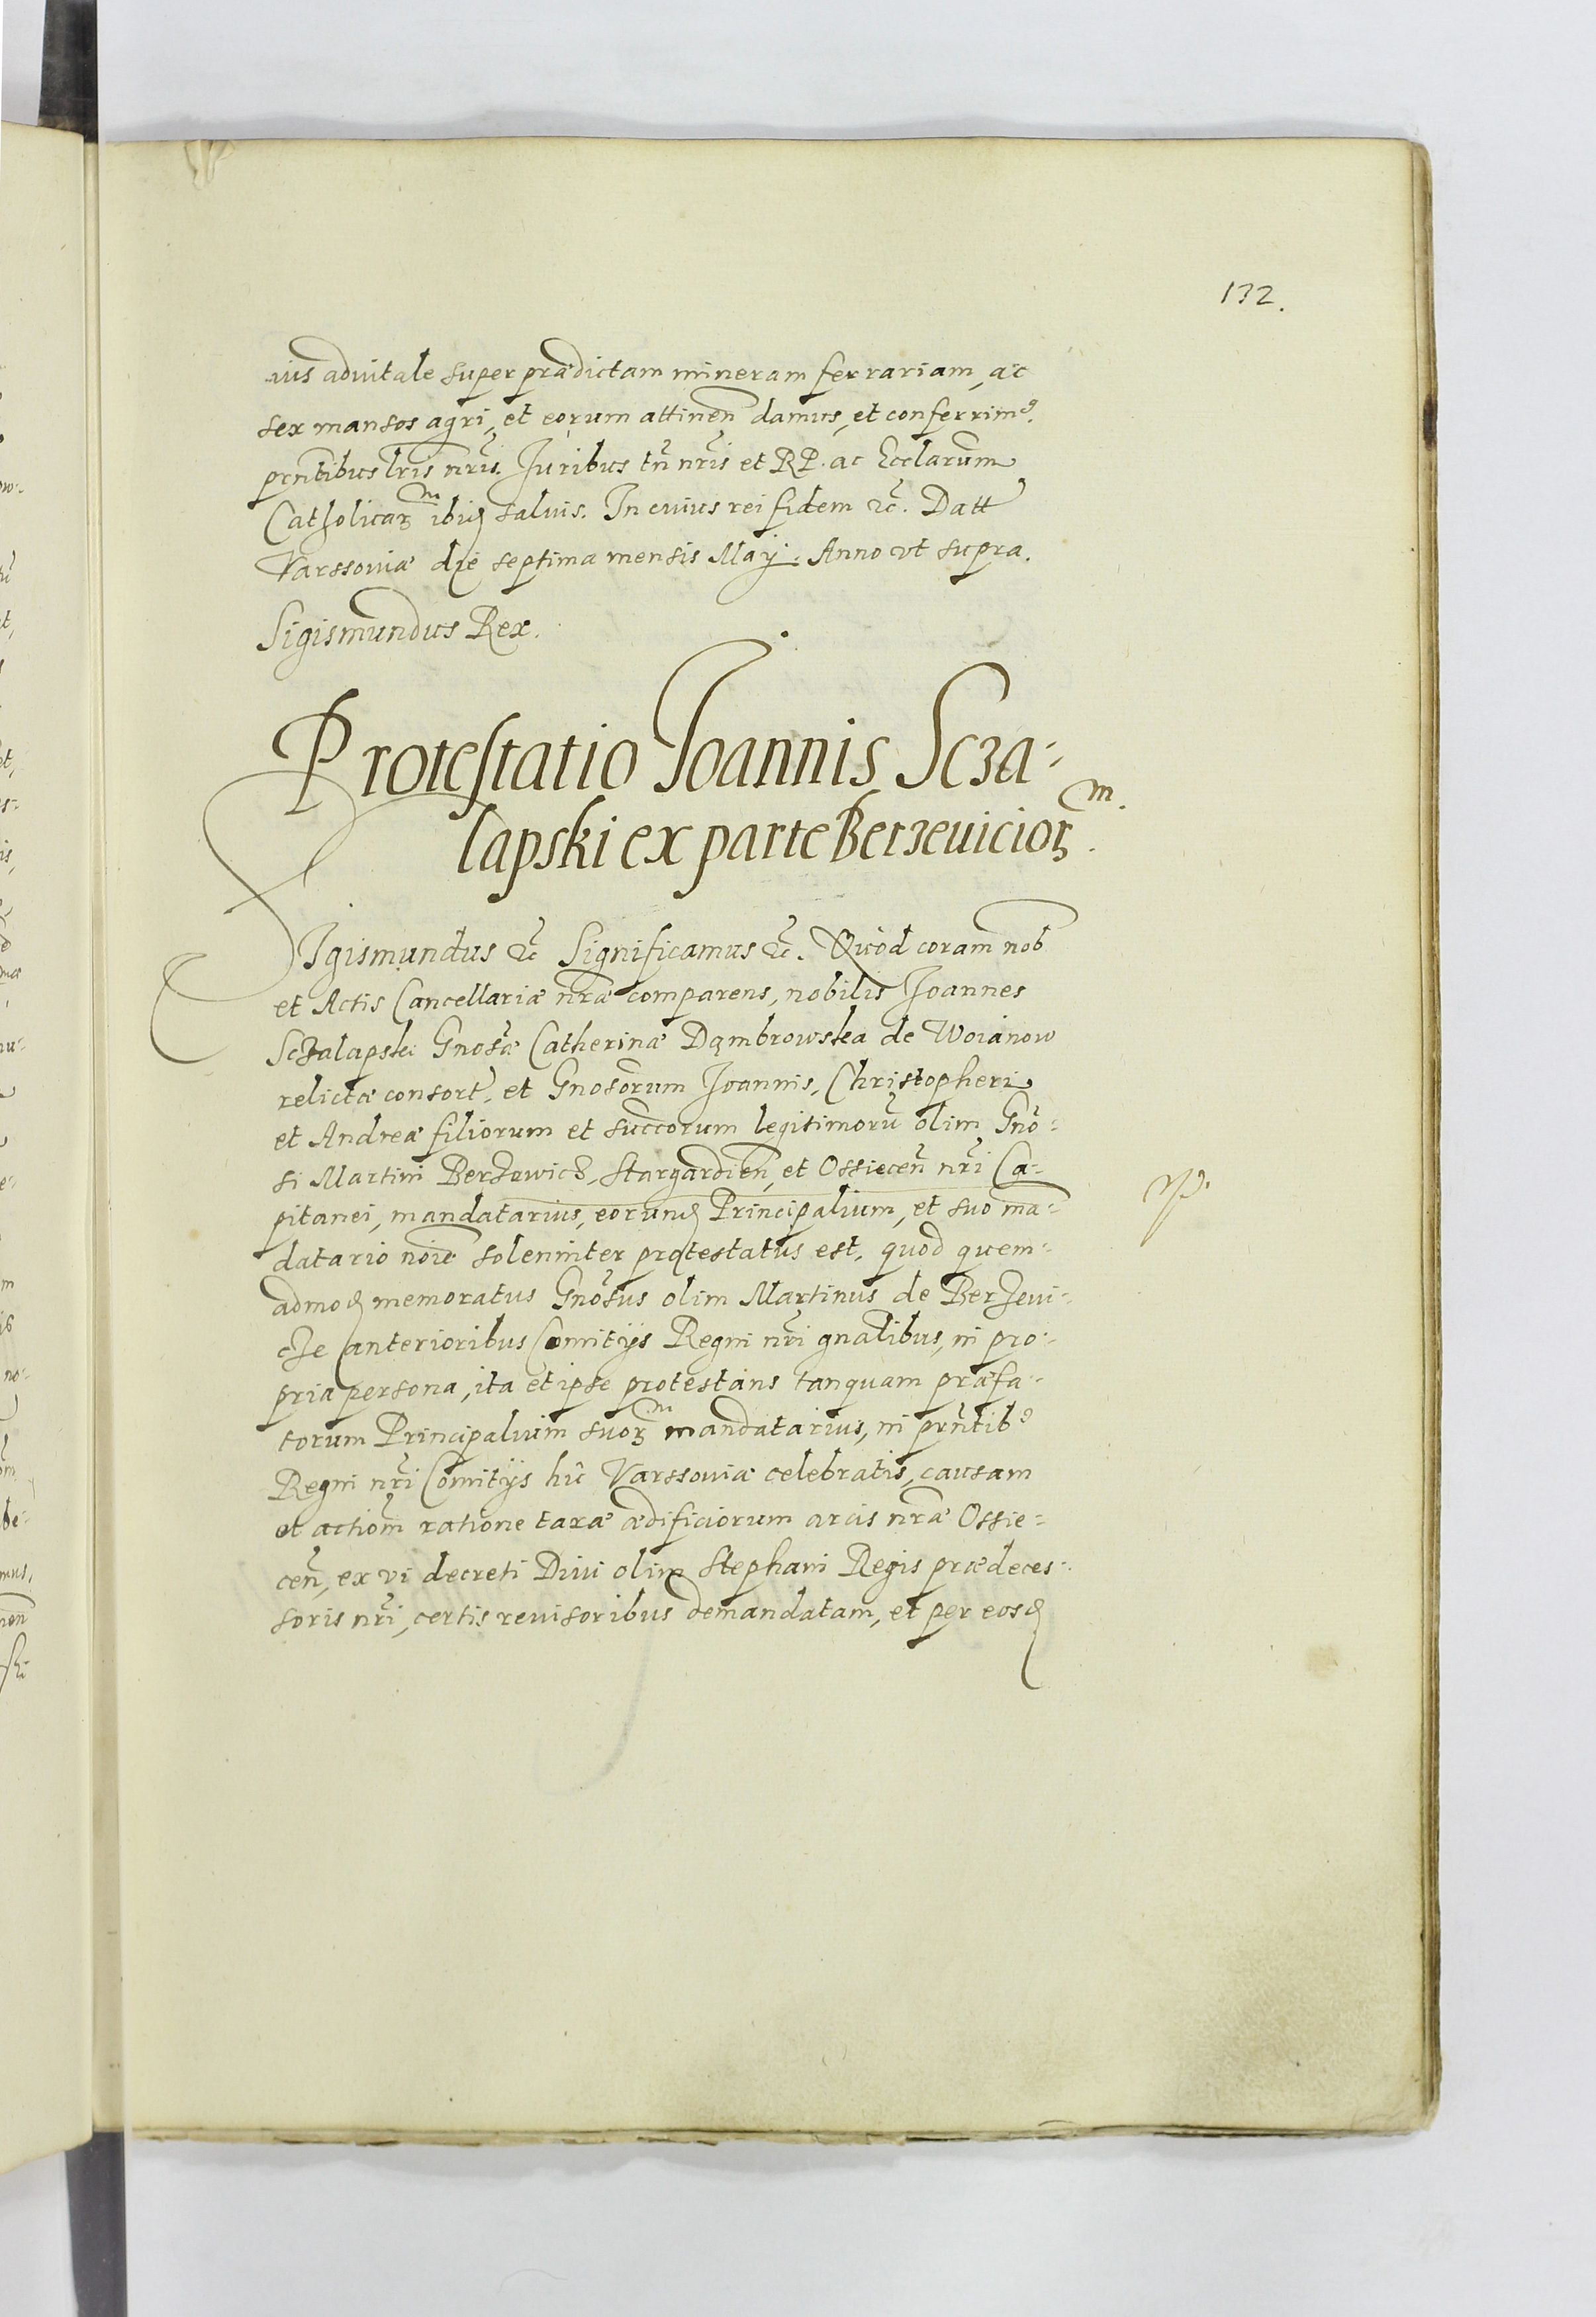 132.
ius aduitale super prædictam mineram ferrariam, ac
sex mansos agri, et eorum attinen̄ damus, et conferrimꝰ.
pr̄ntibus lr̄is nr̄is. Juribus tn̄ nr̄is et RP. ac Eccl̄arum
Catholicarꝫ ᵐ ibiꝫ saluis. In cuius rei fidem ꝛc̄. Datt
Varssouiæ die septima mensis Maij. Anno vt supra.
Sigismundus Rex.
Protestatio Joannis Scza-
lapski ex parte Berzeuiciorꝫ ᵐ.
SIgismundus ꝛc̄ Significamus ꝛc̄. Quòd coram nob
et Actis Cancellariæ nr̄æ comparens, nobilis Joannes
Sczalapski Gnosæ Catherinæ Dąmbrowska de Woianow
relictæ consort, et Gnosorum Joannis, Christopheri
et Andreæ filiorum et succorum legitimorū olim Gno-
si Martini Berzewicz, Stargardien̄, et Ossiecen̄ nr̄i Ca-
pitanei, mandatarius, eorunꝫ Principalium, et suo ma-
datario noīe solenniter protestatus est, quod quem-
admoꝫ memoratus Gnosus olim Martinus de Berzeui-
cze anterioribus Comitijs Regni nr̄i gn̄alibus, in pro-
pria persona, ita et ipse protestans tanquam præfa-
torum Principalium suorꝫ ᵐ mandatarius, in pr̄ntibꝰ
Regni nr̄i Comitijs hic Varssouiæ celebratis, causam
et action̄m ratione taxæ ædificiorum arcis nr̄æ Ossie-
cen̄, ex vi decreti Diui olim Stephani Regis prædeces-
soris nr̄i, certis reuisoribus demandatam, et per eosꝫ